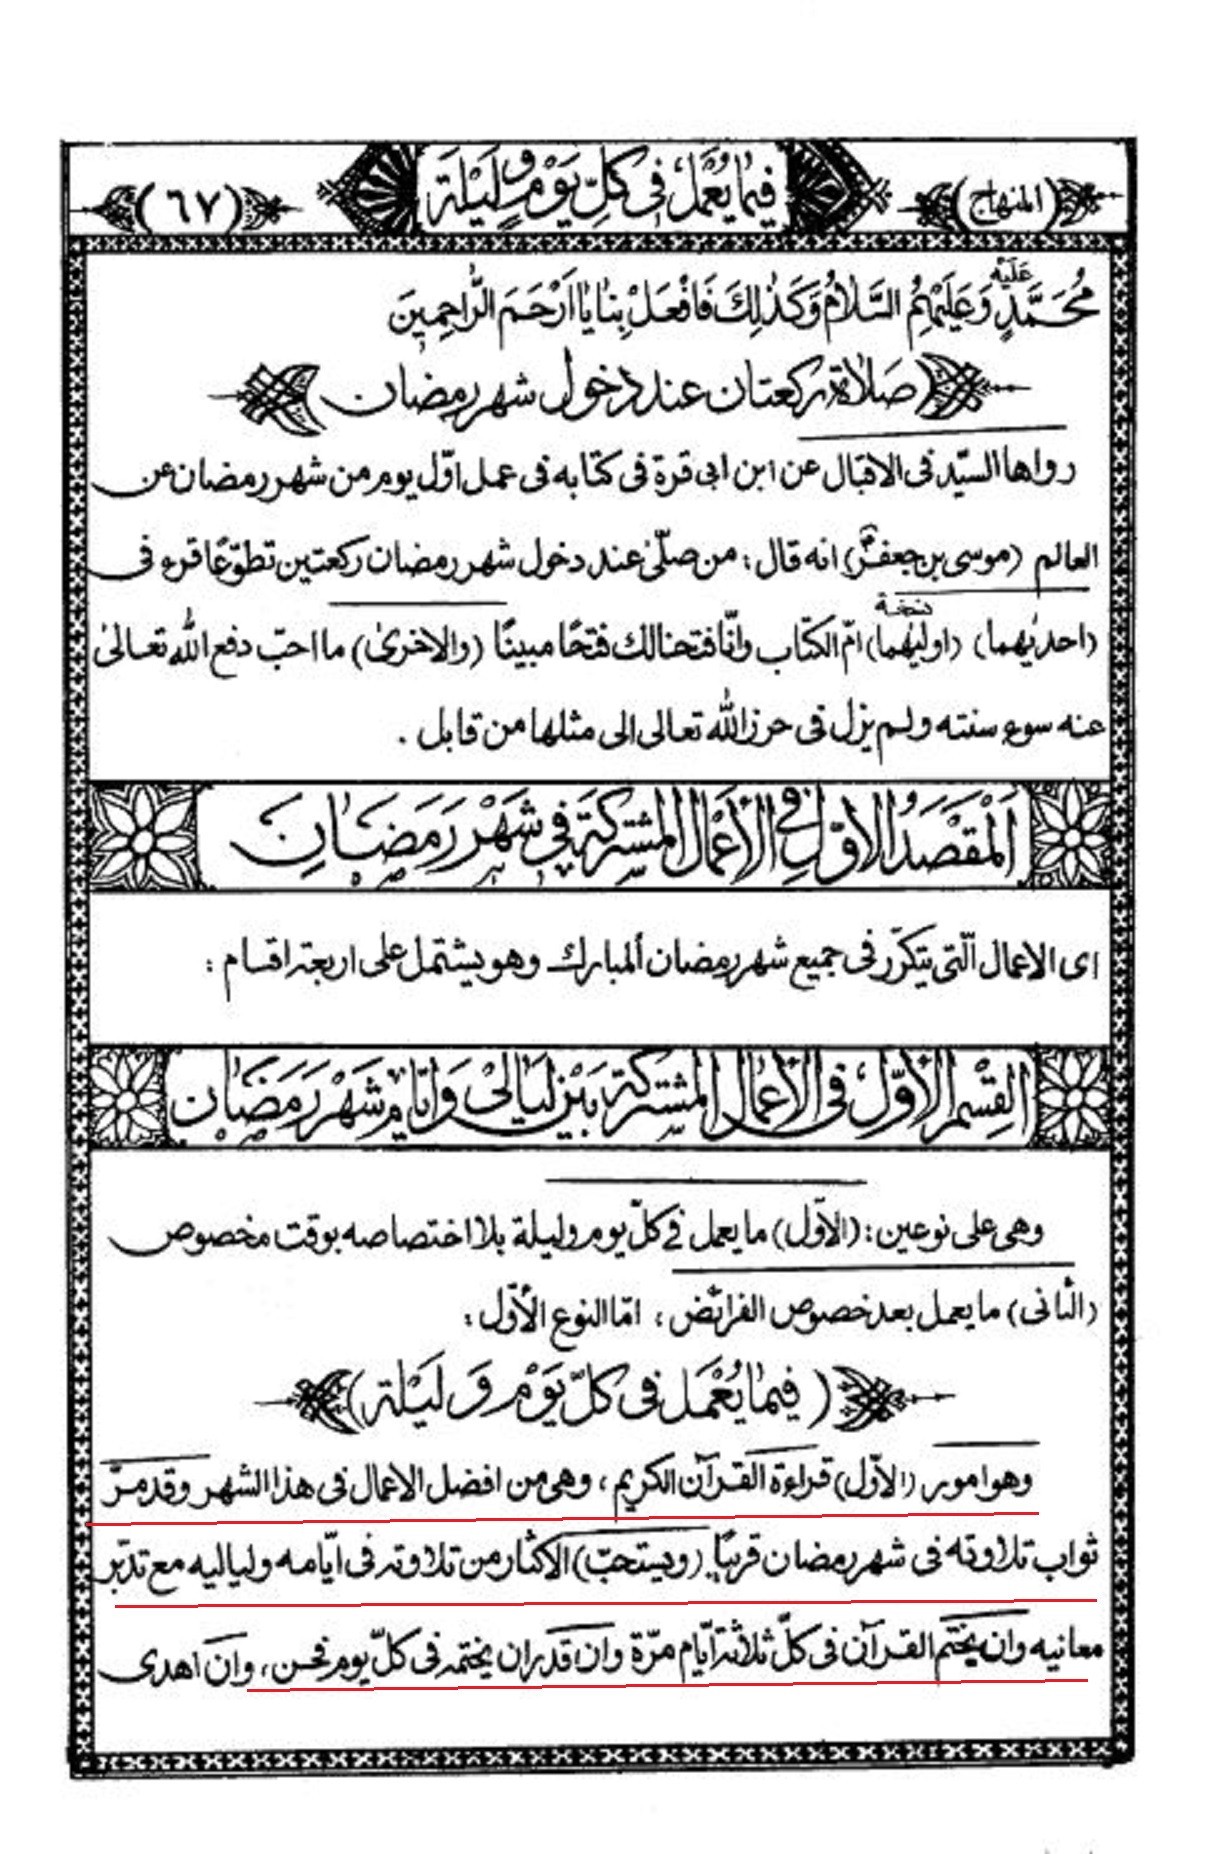 (المنهاج) فِيمَا يُعْمَلُ فِى كُلِّ يَوْمٍ وَ لَيْلَةٍ (٦٧)
مُحَمَّدٍ عَلَيْهِ وَعَلَيْهِمُ السَّلامُ وَكَذٰلِكَ فَافْعَلْ بِنٰا يٰا اَرْحَمَ الرّٰاحِمِينَ
(صَلاة ركعتان عند دخول شهر رمضان)
رواها السيّد فى الاقبال عن ابن ابى قرة فى كتابه فى عمل اوّل يوم من شهر رمضان عن
العالم (موسى بن جعفر) انه قال: من صلّى عند دخول شهر رمضان ركعتين تطوّعًا قرء فى
(احديٰهما) (اوليٰهما) نسخة امّ الكتاب وانّا فتحنا لك فتحًا مبينًا (والاخرىٰ) ما احبّ دفع الله تعالىٰ
عنه سوء سنته ولم يزل فى حرز الله تعالى الى مثلها من قابل .
اَلْمَقْصَدُ الأوّل فِي الْأَعْمَالِ المُشْتَرَكَةِ فِي شَهْرِ رَمَضَانِ
اى الاعمال الّتى يتكرّر فى جميع شهر رمضان ألمبارك وهو يشتمل على اربعة اقسام :
القِسْمُ الأَوّلُ فِى الأَعْمَالِ المُشْتَرَكَةِ بَيْنَ لَيَالِىْ وَ ايّامِ شَهْرِ رَمَضَان
وهى على نوعين: (الأوّل) ما يعمل في كلّ يوم وليلة بلا اختصاصه بوقت مخصوص
(الثانى) ما يعمل بعد خصوص الفرائض ، امّا النوع الأوّل :
(فِيمٰا يُعْمَل فى كلّ يَوْم وَ لَيْلَة)
وهو امور (الأوّل) قراءة القرآن الكريم ، وهى من افضل الاعمال فى هذا الشهر وقد مرّ
ثواب تلاوته فى شهر رمضان قريبًا (ويستحبّ) الاكثار من تلاوته فى ايّامه ولياليه مع تدبّر
معانيه وان يختم القرآن فى كلّ ثلاثة ايّام مرّة وان قدر ان يختمه فى كلّ يوم فحسن ، وان اهدى